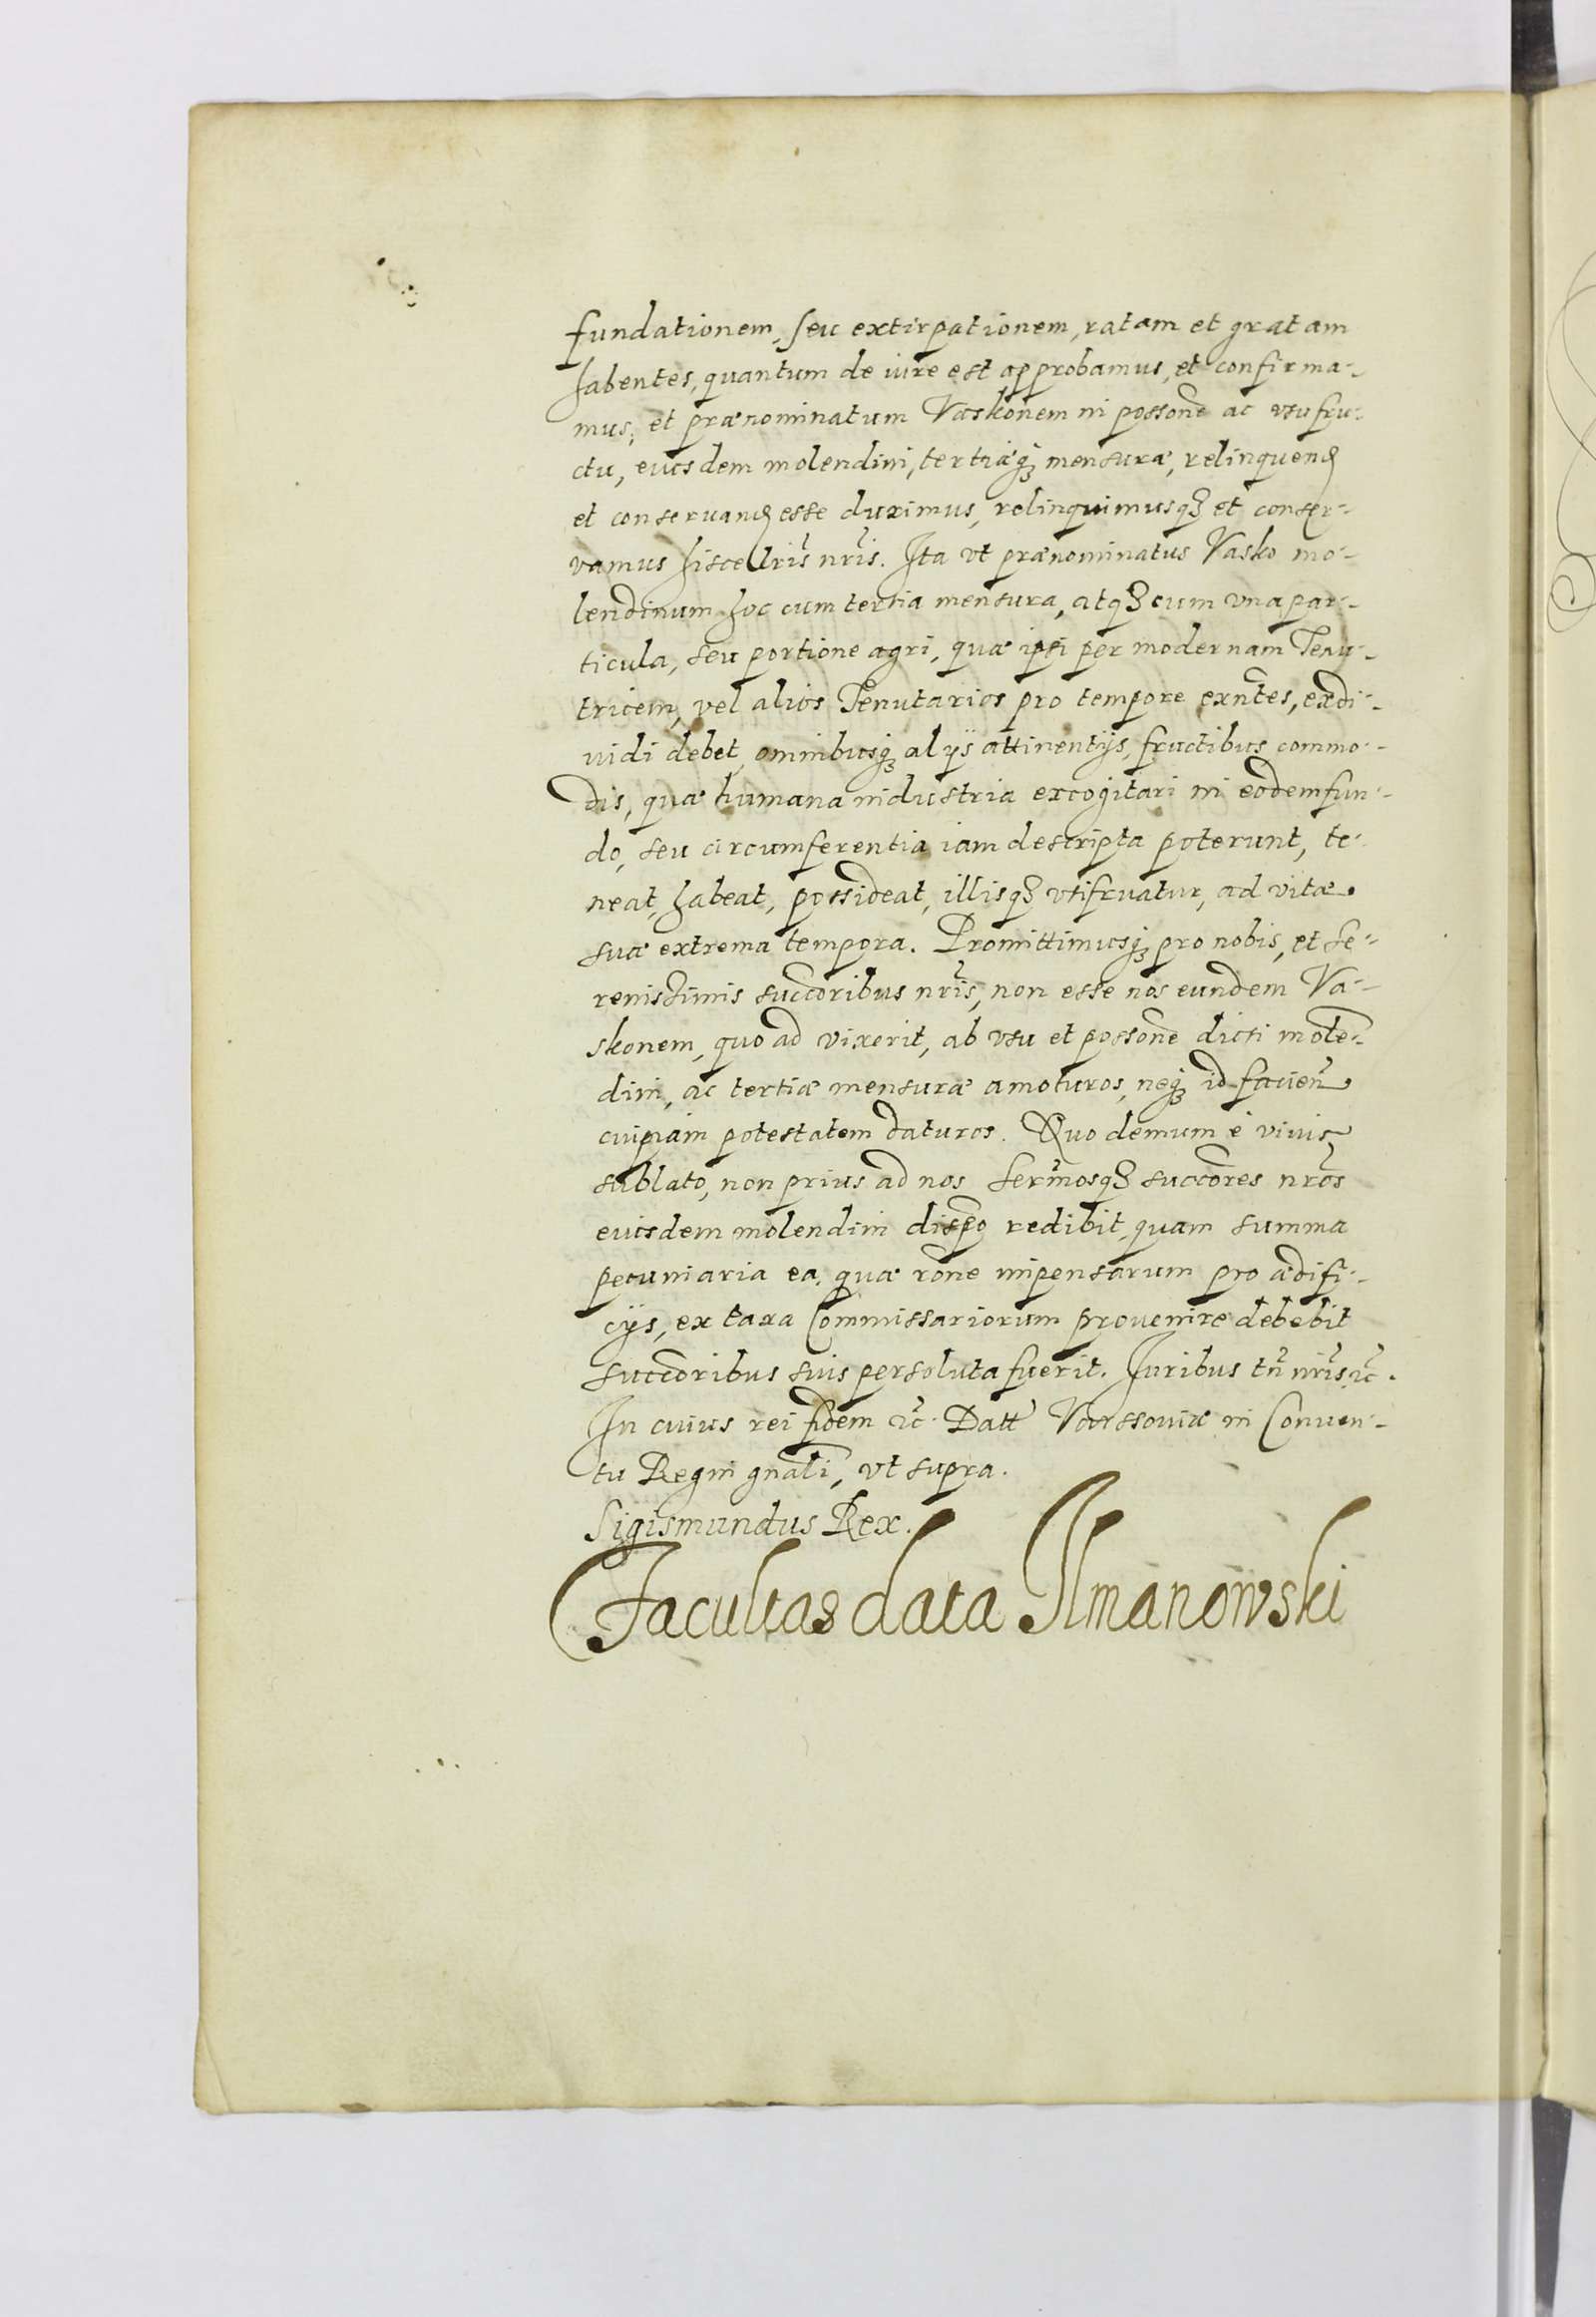 fundationem, seu extirpationem, ratam et gratam
habentes, quantum de iure est approbamus, et confirma-
mus, et prænominatum Vaskonem in possone ac vsufru-
ctu, eiusdem molendini, tertiæq3 mensuræ, relinquend
et conseruand esse duximus, relinquimusq3 et conser-
vamus hisce lris nris. Ita vt prænominatus Vasko mo-
lendinum hoc cum tertia mensura, atq3 cum vna par-
ticula, seu portione agri, quæ ipsi per modernam Tenu-
tricem, vel alios Tenutarios pro tempore exntes, exdi-
uidi debet, omnibusq3 alijs attinentijs, fructibus commo-
dis, quæ humana industria excogitari in eodem fun-
do, seu circumferentia iam descripta poterunt, te-
neat, habeat, possideat, illisq3 vtifruatur, ad vitæ
suæ extrema tempora. Promittimusq3 pro nobis, et Se-
renissimis succoribus nris, non esse nos eundem Va-
skonem, quo ad vixerit, ab vsu et possone dicti mole-
dini, ac tertiæ mensuræ amoturos, neq3 id facien
cuipiam potestatem daturos. Quo demum è viuis
sublato, non prius ad nos Sermosq3 succores nros
eiusdem molendini dispo redibit, quam summa
pecuniaria ea, quæ rone impensarum pro ædifi-
cijs, ex taxa Commissariorum prouenire debebit
succoribus suis persoluta fuerit. Iuribus tn nris, &c.
In cuius rei fidem &c. Datt Varssouiæ in Conuen-
tu Regni gnali, vt supra.
Sigismundus Rex.
Facultas data Ilmanowski